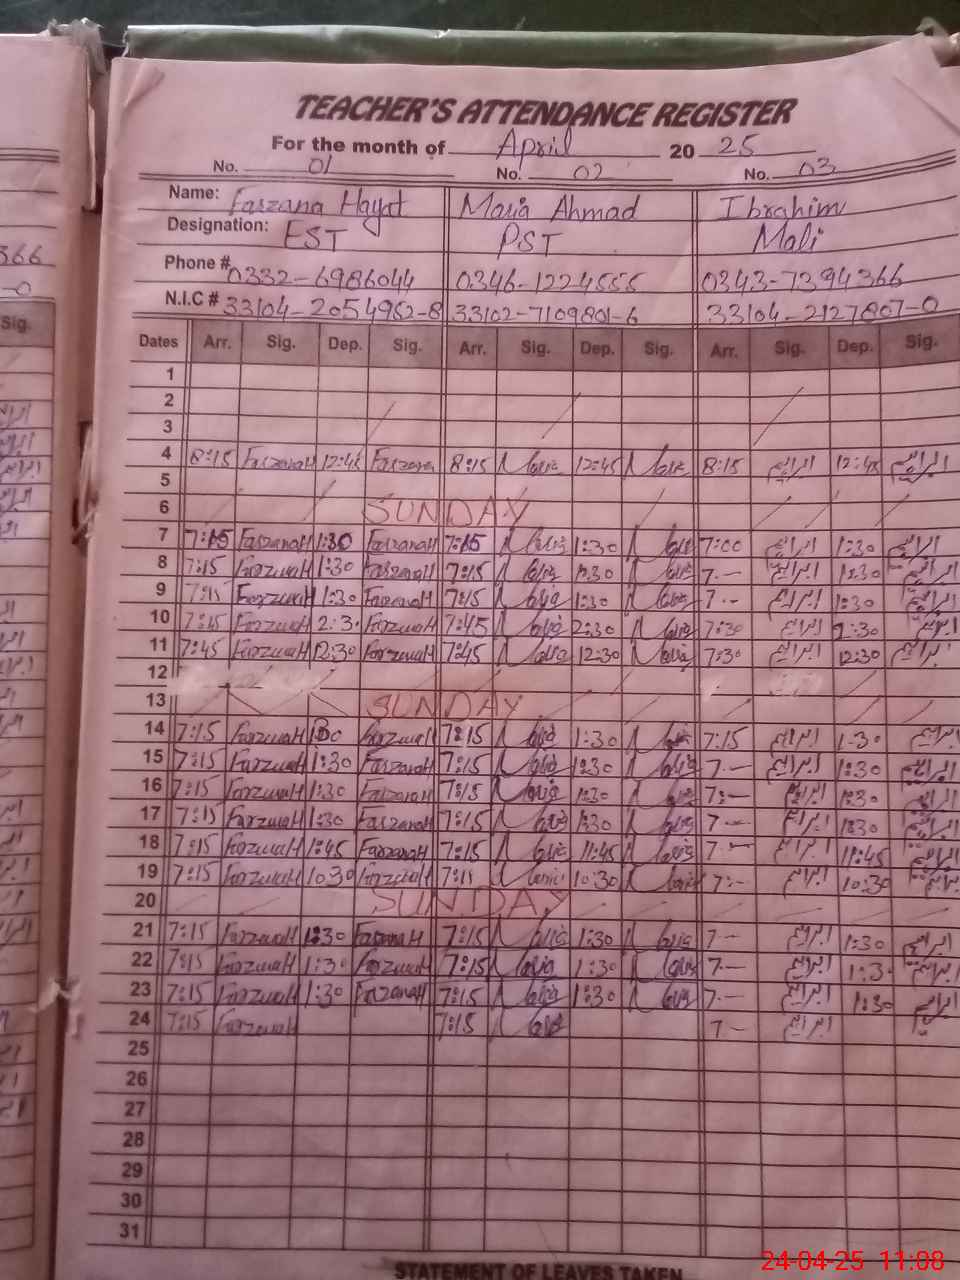 TEACHER'S ATTENDANCE REGISTER
For the month of April 20 25
No. 01 No. 02 No. 03
Name: Farzana Hayat Maria Ahmad Ibrahim
Designation: EST PST Mali
Phone # 0332-6986044 0346-1224555 0343-7394366
N.I.C # 33104-2054952-8 33102-7109801-6 33104-2127807-0
Sig. Dates Arr. Sig. Dep. Sig. Arr. Sig. Dep. Sig. Arr. Sig. Dep. Sig.
1
2
3
4 8:15 FarzanaH 12:45 Farzana 8:15 Maria 12:45 Maria 8:15 ابراہیم 12:45 ابراہیم
5
6 SUNDAY
7 7:15 FarzanaH 1:30 FarzanaH 7:15 Maria 1:30 Maria 7:00 ابراہیم 1:30 ابراہیم
8 7:15 FarzanaH 1:30 FarzanaH 7:15 Maria 1:30 Maria 7.— ابراہیم 1:30 ابراہیم
9 7:15 FarzanaH 1:30 FarzanaH 7:15 Maria 1:30 Maria 7.— ابراہیم 1:30 ابراہیم
10 7:45 FarzanaH 2:3. FarzanaH 7:45 Maria 2:30 Maria 7:30 ابراہیم 2:30 ابراہیم
11 7:45 FarzanaH 12:30 FarzanaH 7:45 Maria 12:30 Maria 7:30 ابراہیم 12:30 ابراہیم
12
13 SUNDAY
14 7:15 FarzanaH 1:30 FarzanaH 7:15 Maria 1:30 Maria 7:15 ابراہیم 1:30 ابراہیم
15 7:15 FarzanaH 1:30 FarzanaH 7:15 Maria 1:30 Maria 7.— ابراہیم 1:30 ابراہیم
16 7:15 FarzanaH 1:30 FarzanaH 7:15 Maria 1:30 Maria 7:— ابراہیم 1:30 ابراہیم
17 7:15 FarzanaH 1:30 FarzanaH 7:15 Maria 1:30 Maria 7.— ابراہیم 1:30 ابراہیم
18 7:15 FarzanaH 1:45 FarzanaH 7:15 Maria 11:45 Maria 7.— ابراہیم 11:45 ابراہیم
19 7:15 FarzanaH 10:30 FarzanaH 7:15 Maria 10:30 Maria 7:— ابراہیم 10:30 ابراہیم
20 SUNDAY
21 7:15 FarzanaH 1:30 FarzanaH 7:15 Maria 1:30 Maria 7— ابراہیم 1:30 ابراہیم
22 7:15 FarzanaH 1:30 FarzanaH 7:15 Maria 1:30 Maria 7.— ابراہیم 1:3. ابراہیم
23 7:15 FarzanaH 1:30 FarzanaH 7:15 Maria 1:30 Maria 7.— ابراہیم 1:30 ابراہیم
24 7:15 FarzanaH 7:15 Maria 7— ابراہیم ابراہیم
25
26
27
28
29
30
31
STATEMENT OF LEAVES TAKEN
24-04-25 11:08